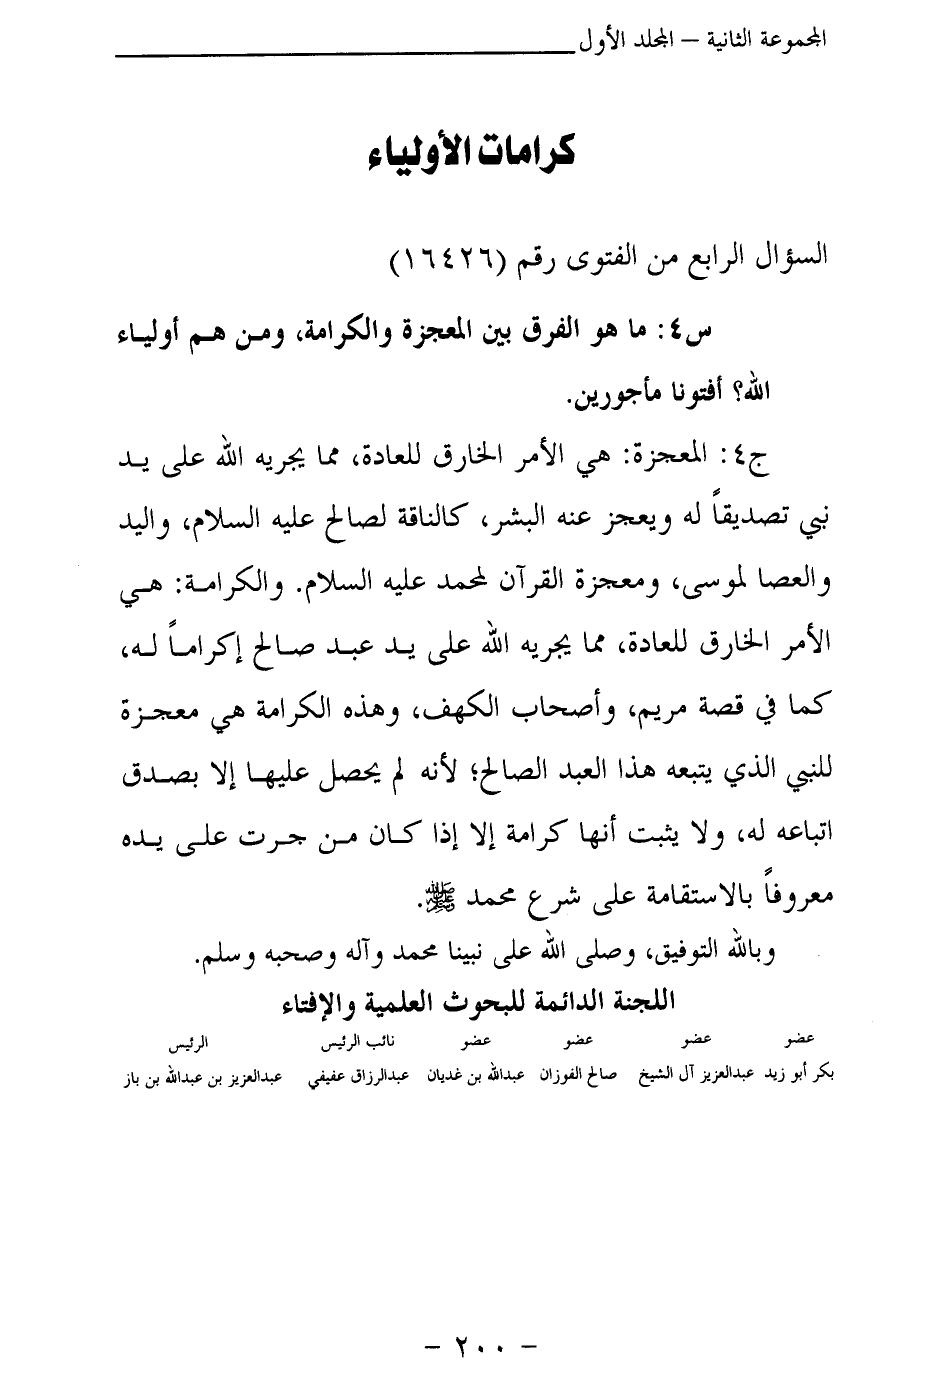 المجموعة الثانية – المجلد الأول
كرامات الأولياء
السؤال الرابع من الفتوى رقم (١٦٤٢٦)
س٤: ما هو الفرق بين المعجزة والكرامة، ومن هم أولياء
الله؟ أفتونا مأجورين.
ج٤: المعجزة: هي الأمر الخارق للعادة، مما يجريه الله على يد
نبي تصديقاً له ويعجز عنه البشر، كالناقة لصالح عليه السلام، واليد
والعصا لموسى، ومعجزة القرآن لمحمد عليه السلام. والكرامة: هي
الأمر الخارق للعادة، مما يجريه الله على يد عبد صالح إكراماً له،
كما في قصة مريم، وأصحاب الكهف، وهذه الكرامة هي معجزة
للنبي الذي يتبعه هذا العبد الصالح؛ لأنه لم يحصل عليها إلا بصدق
اتباعه له، ولا يثبت أنها كرامة إلا إذا كان من جرت على يده
معروفاً بالاستقامة على شرع محمد ﷺ.
وبالله التوفيق، وصلى الله على نبينا محمد وآله وصحبه وسلم.
اللجنة الدائمة للبحوث العلمية والإفتاء
عضو عضو عضو عضو نائب الرئيس الرئيس
بكر أبو زيد عبدالعزيز آل الشيخ صالح الفوزان عبدالله بن غديان عبدالرزاق عفيفي عبدالعزيز بن عبدالله بن باز
– ٢٠٠ –